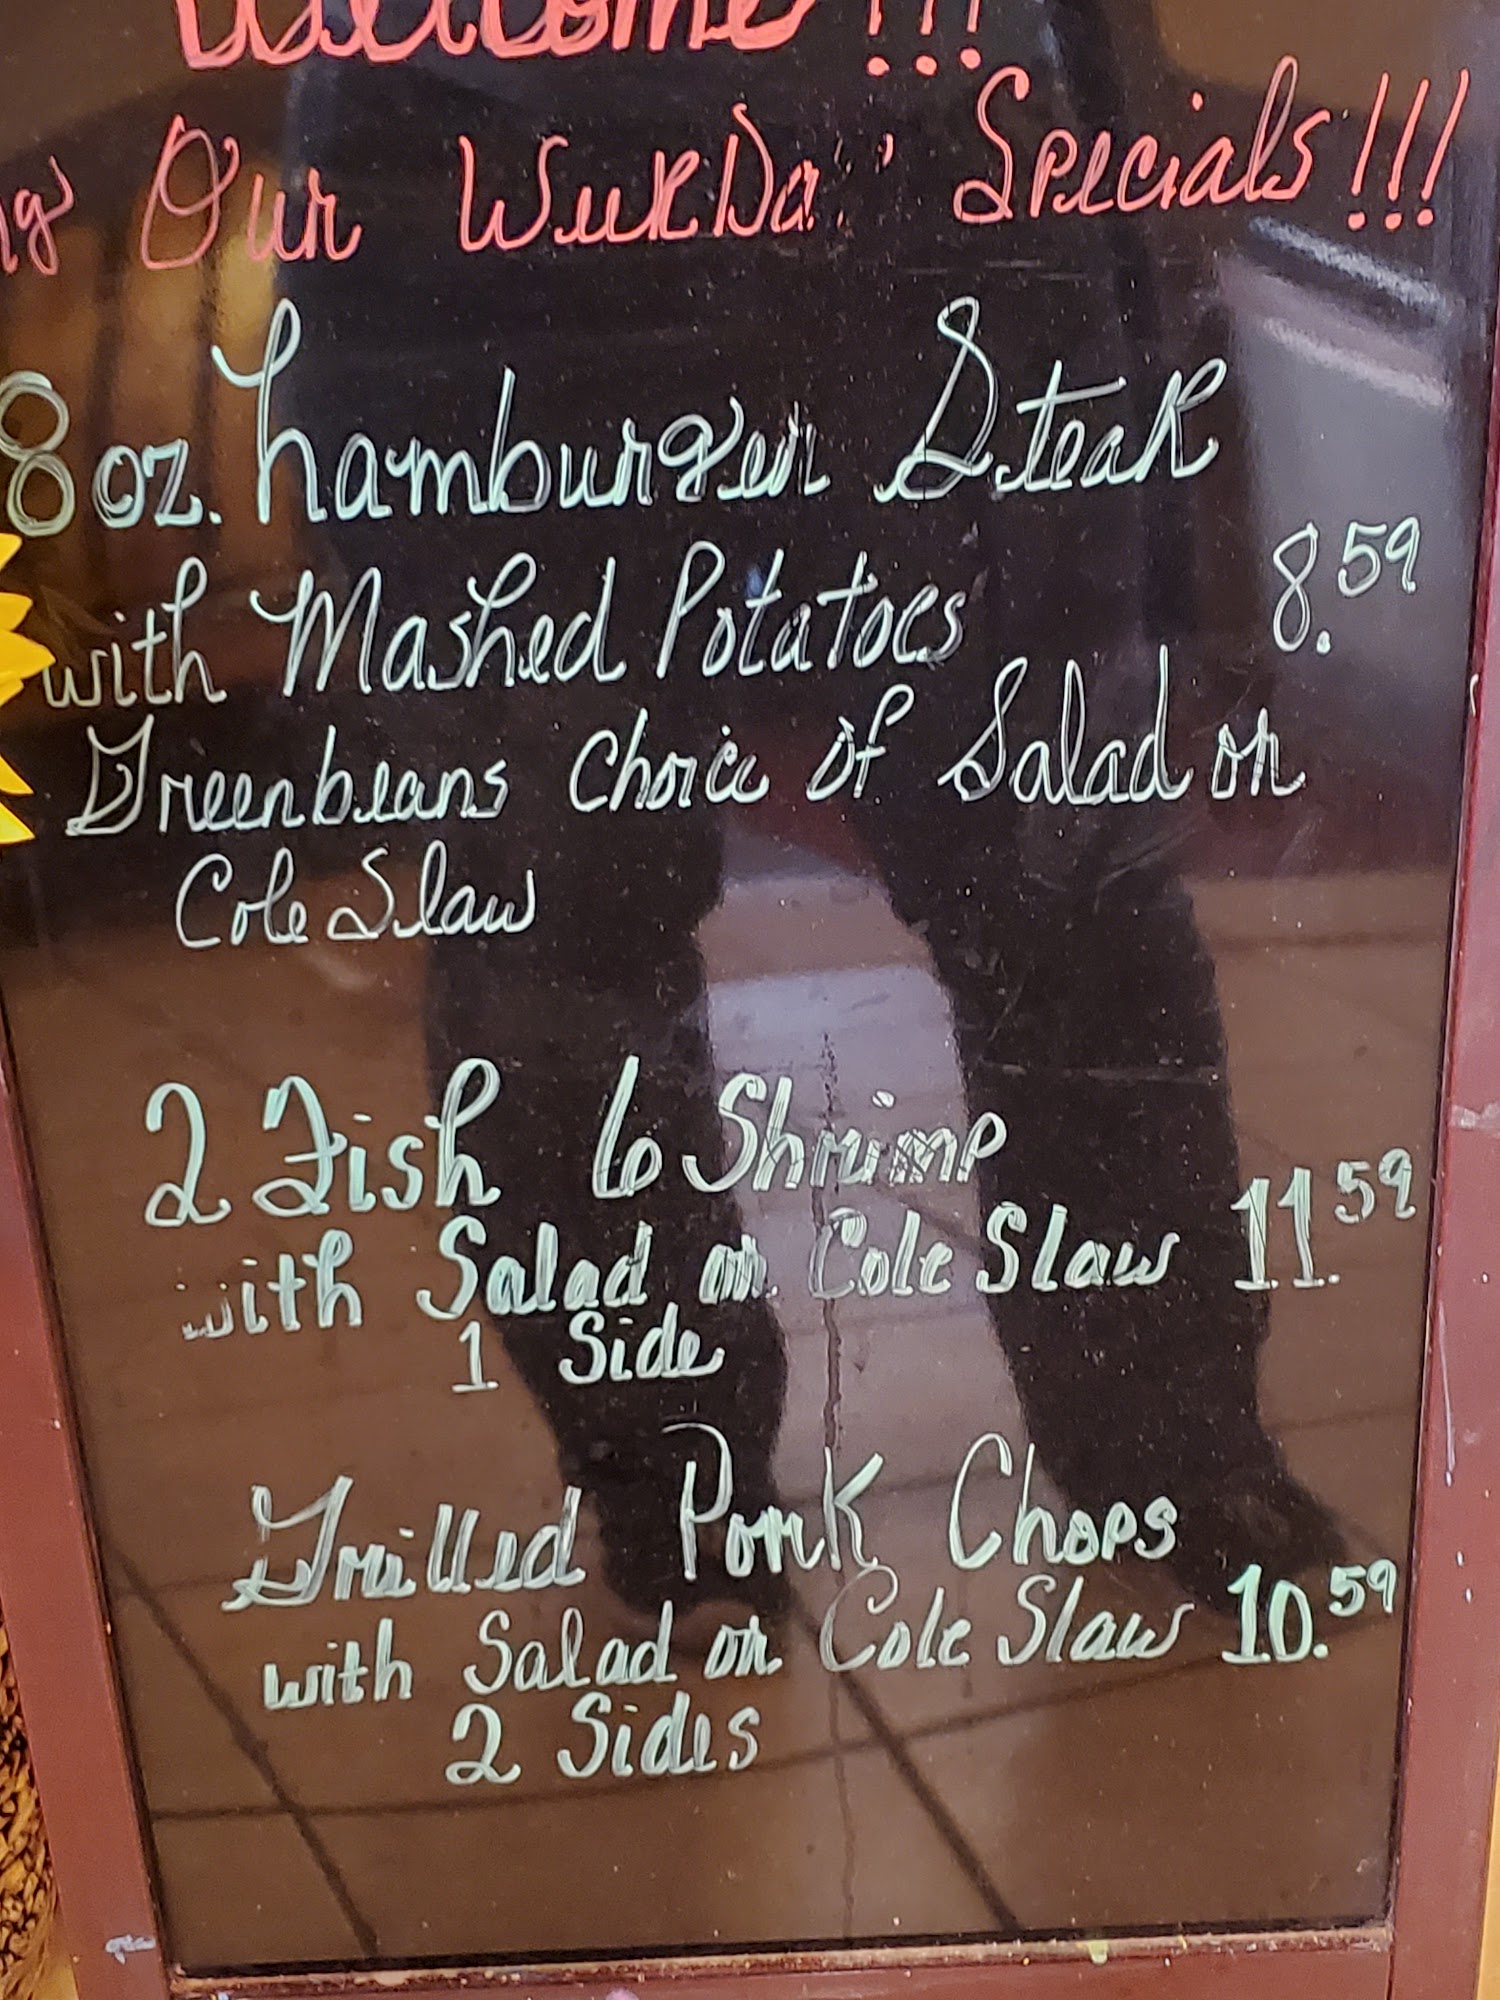 Welcome!!!
Our Specials!!!
8 oz. hamburger Steak
with Mashed Potatoes 8.59
Greenbeans Choice of Salad or
Cole Slaw
2 Fish 6 Shrimp
with Salad or Cole Slaw 11.59
1 Side
Grilled Pork Chops
with Salad or Cole Slaw 10.59
2 Sides